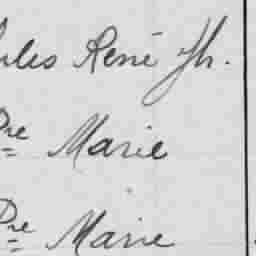 ules René Jh.
Pre Marie
Pre Marie